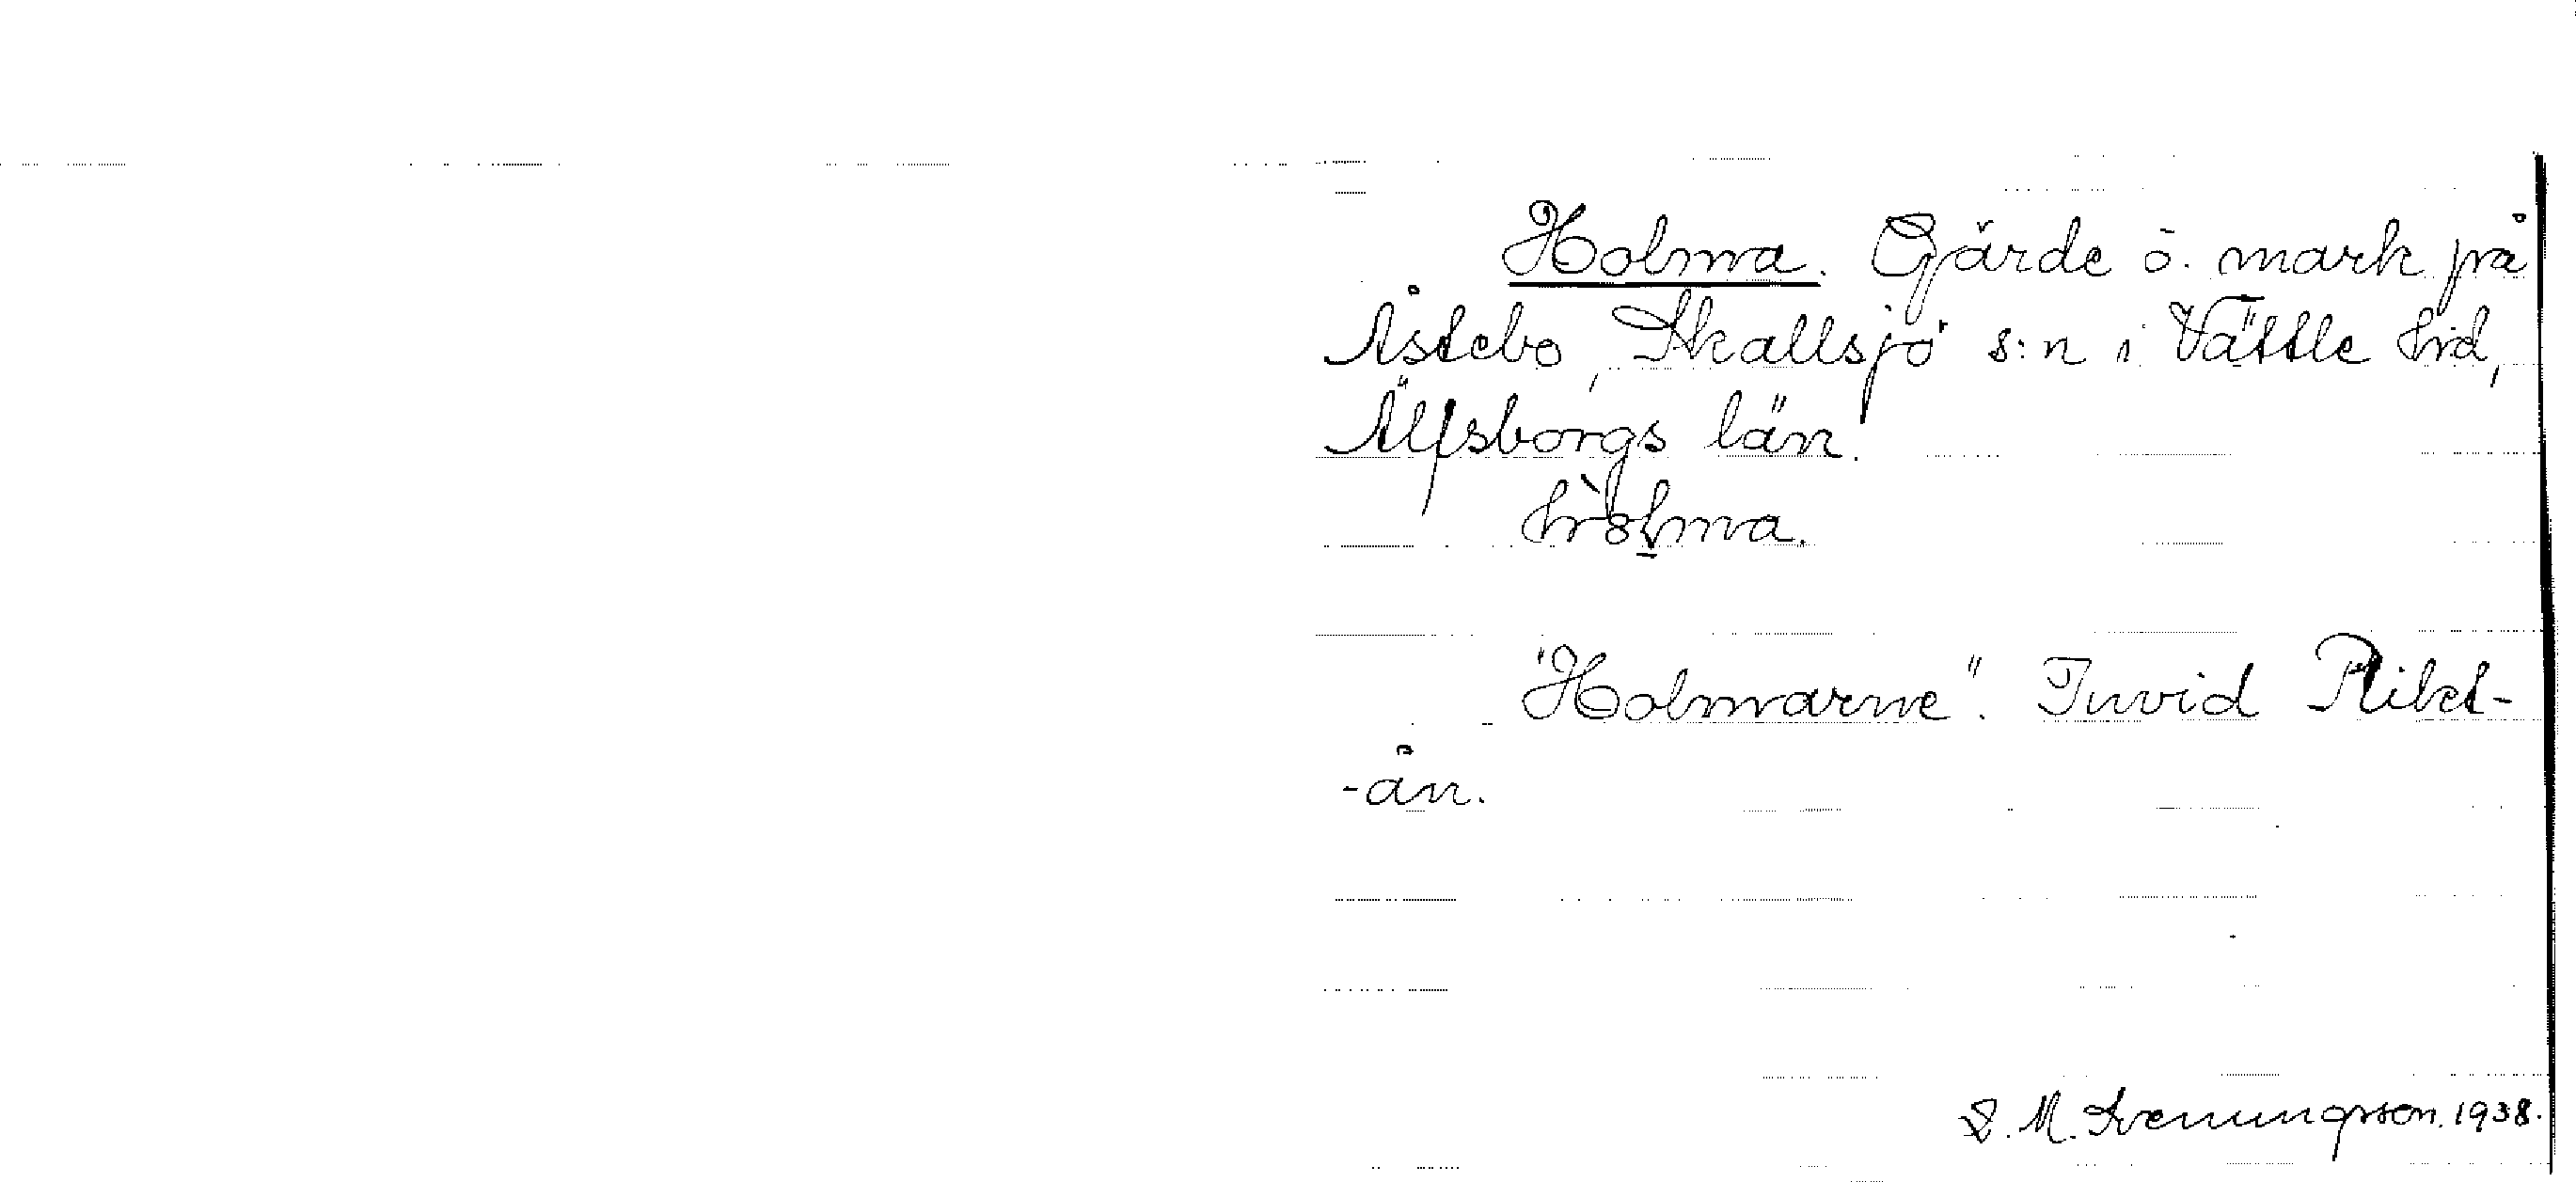 Holma. Gärde ō. mark på
Åstebo, Skallsjö s:n i Vättle hd,
Älfsborgs län.
hòlma.
"Holmarne". Invid Ribet-
-ån.
D. M. Svenungsson. 1938.